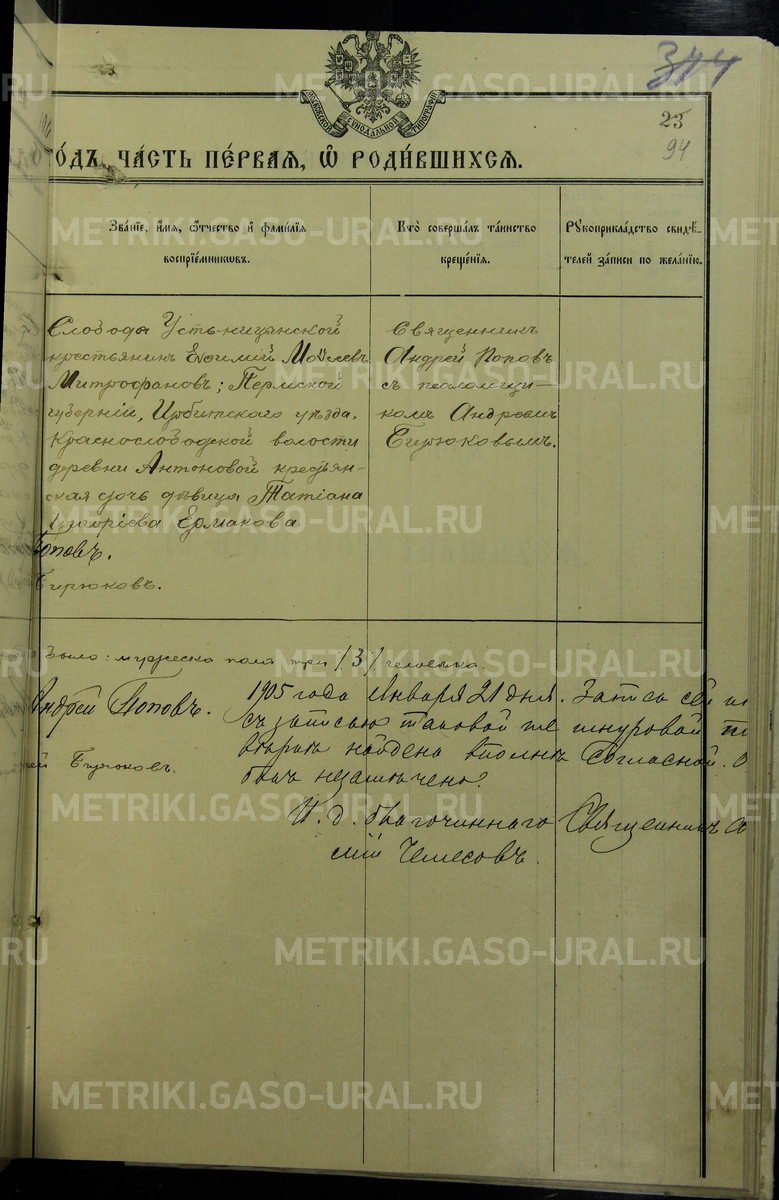 МОСКОВСКОЙ СѴНОДАЛЬНОЙ ТИПОГРАФІИ
314
23
94
го́дъ, ча́сть пе́рвая, ѡ҆ роди́вшихся.
Зва́ніе, и҆́мя, ѻ҆́тчество и҆ фами́лія
воспріе́мникѡвъ.
Кто̀ соверша́лъ та́инство
креще́нія.
Рꙋкоприкла́дство свидѣ́-
телей за́писи по жела́нію.
Слободы Усть-ницынской
крестьянинъ Евфимій Моѵсеевъ
Митрофановъ; Пермской
губерніи, Ирбитскаго уѣзда,
Краснослободской волости
деревни Антоновой крестьян-
ская дочь дѣвица Татіана
Григоріева Ермакова
Поповъ.
Бирюковъ.
Священникъ
Андрей Поповъ
съ псаломщи-
комъ Андреемъ
Бирюковымъ.
Было: мужеска пола три /3/ человѣка.
Андрей Поповъ.
Бирюковъ.
1905 года Января 21 дня. Запись сей
съ записью таковой же шнуровой
найдена вполнѣ согласной.
И. д. благочиннаго Священникъ
METRIKI.GASO-URAL.RU